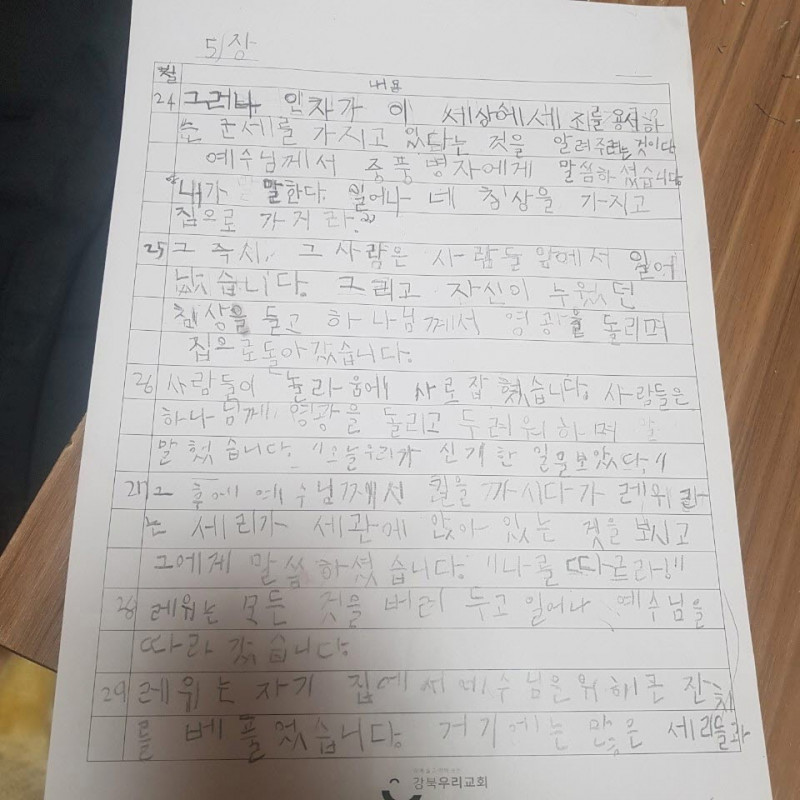 5장
절 내용
24 그러나 인자가 이 세상에세 죄를 용서하
는 군세를 가지고 있다는 것을 알려주려는것이다
예수님께서 중풍병자에게 말씀하셨습니다
"내가 말한다. 일어나 네 침상을 가지고
집으로 가거라."
25 그 즉시, 그 사람은 사람들 앞에서 일어
났습니다. 그리고 자신이 누웠던
침상을 들고 하나님께서 영광을 돌리며
집으로돌아갔습니다.
26 사람들이 놀라움에 사로잡혔습니다. 사람들은
하나님께 영광을 돌리고 두려워하며 말
말했습니다. "오늘우리가 신기한 일을보았다."
27 그 후에 예수님께서 길을 가시다가 레위라
는 세리가 세관에 앉아 있는 것을 보시고
그에게 말씀하셨습니다. "나를 따르라!"
28 레위는 모든 것을 버려 두고 일어나 예수님을
따라 갔습니다.
29 레위는 자기 집에서예수님을위해큰 잔치
를 베풀었습니다. 거기에는 많은 세리들과
강북우리교회